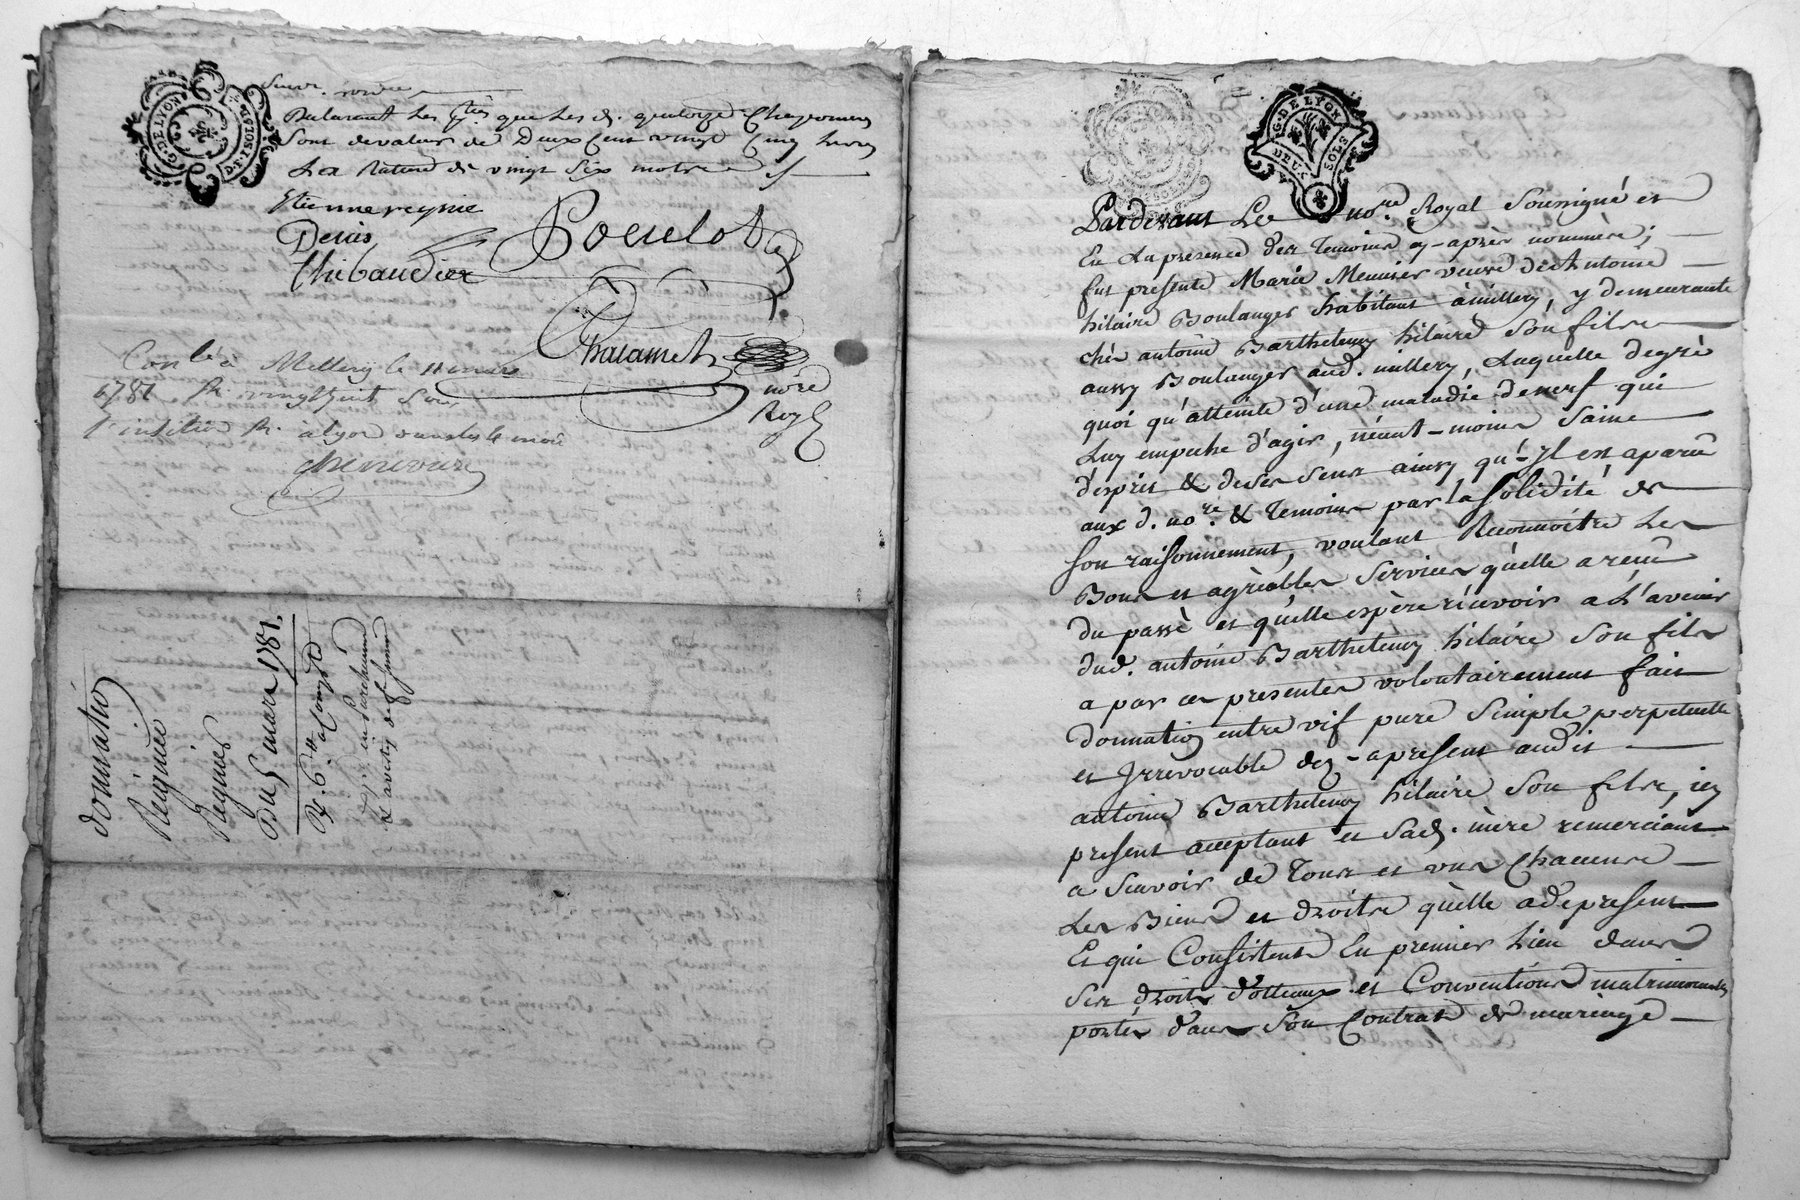 G. DE LYON
D. F. 1 SOL 8 D.
declarant les pties que les d. quatorze
sont de valeur de Deux Cent vingt Cinq livres
La Rature de vingt six motre
Etienne reynie
Denis
Thibaudier
Poculot
Chalamel
nore
Royl
Con lé à Millery le 11 mars
1781 R. vingt huit sous
chenevure
donnatiõ
Reignier
Regnier
Du 5 mars 1781.
R. 6 tt acompte
G. DE LYON
DEUX SOLS
Pardevant Le nore. Royal soussigné et
En la presence des Temoins cy-après nommèes;
fut presente Marie Meunier veuve de Antoine
hilaire Boulanger habitant à millery, y demeurante
chés antoine Barthelemy hilaire son fils
aussy Boulanger aud. millery, Laquelle de gré
quoi qu'atteinte d'une maladie de nerf qui
Luy empeche d'agir, néant-moins saine
d'esprit & de ses sens ainsy qu'-jl est aparu
aux d. nore. & Temoins par la solidité de
son raisonnement, voulant Reconnoitre Les
Bons et agréables services qu'elle a recu
du passé et qu'elle espère récevoir a L'avenir
dud. antoine Barthelemy hilaire son fils
a par ces presentes volontairement fait
donnation entre vif pure simple perpetuelle
et Irrevocable dez-apresent audit
antoine Barthelemy hilaire son fils, icy
present acceptant et sad. mère remerciant
a scavoir de Tous et uns Chacuns
Les Biens et droits qu'elle a de present
Et qui Consistent En premier Lieu dans
ses droits dotteaux et Conventions matrimoniales
portés dans son Contrat de mariage